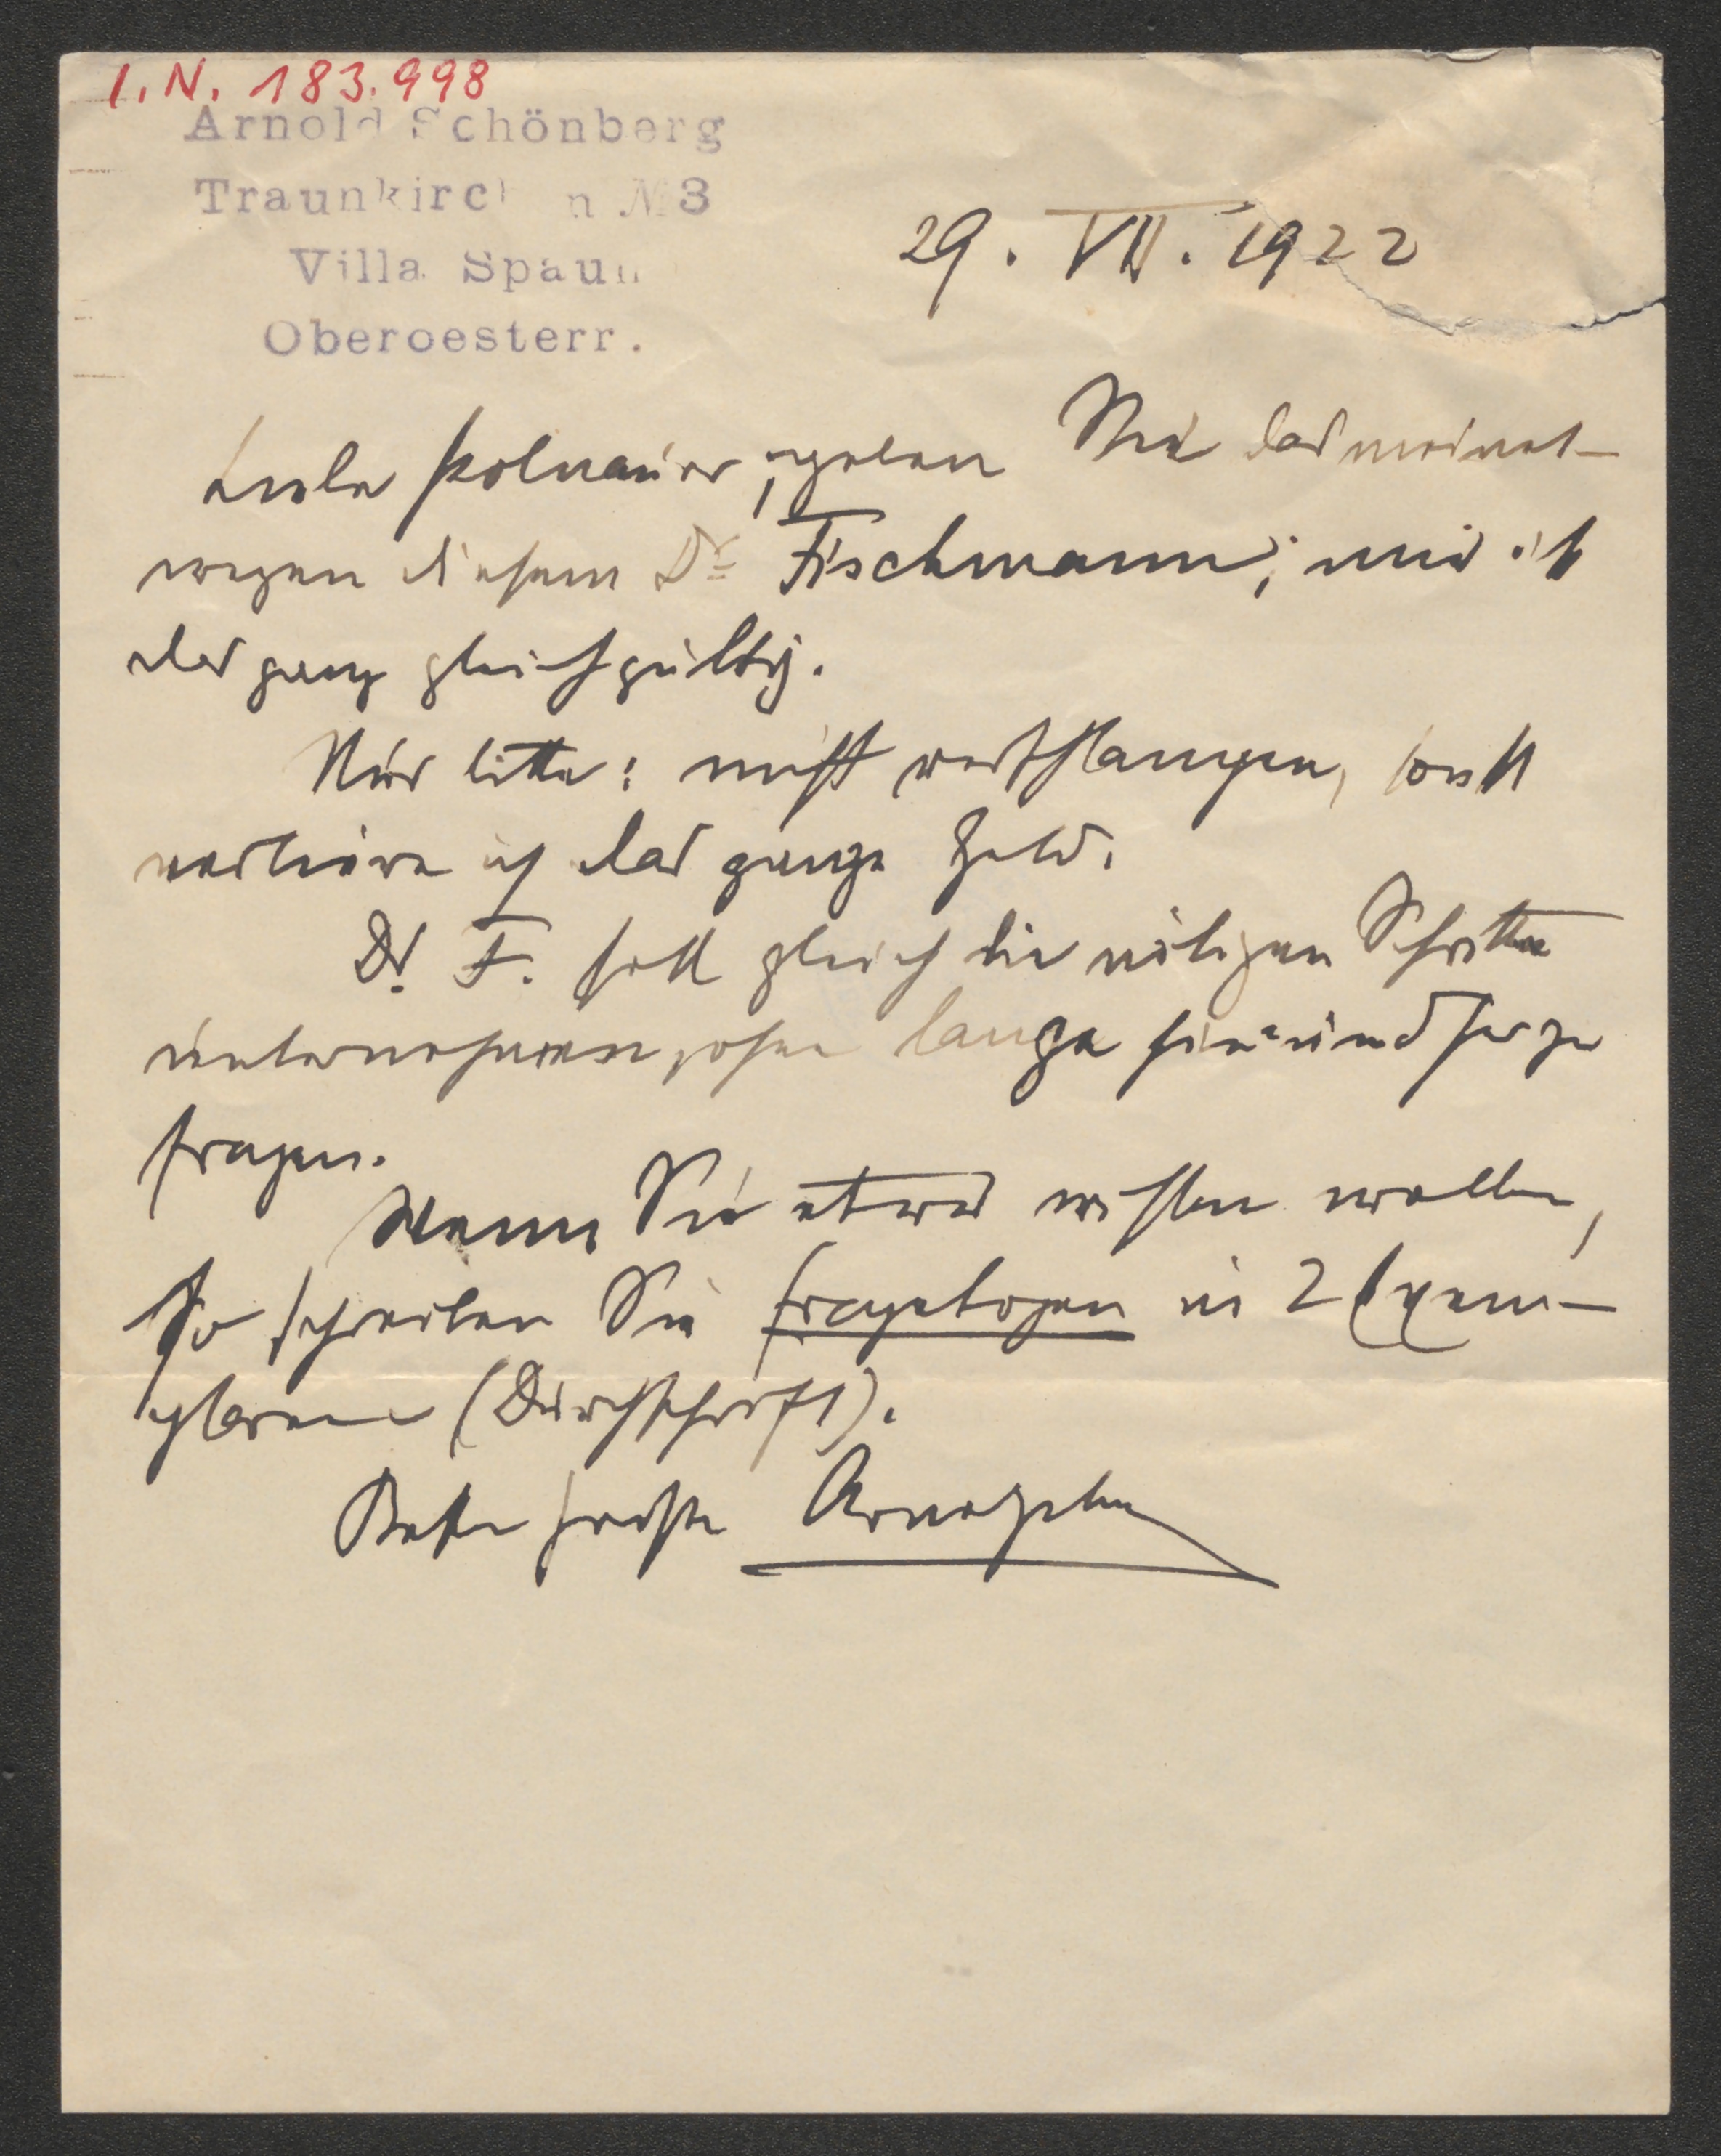 I.N. 183.998
Arnold Schönberg
Traunkirchen № 3
Villa Spaun
Oberoesterr.
29. VII. 1922
Lieber Polnauer, geben Sie das meinet-
wegen diesem Dr Fischmann; mir ist
das ganz gleichgültig.
Nur bitte: nicht verschlampen, sonst
verliere ich das ganze Geld.
Dr. F. soll gleich die nötigen Schritte
unternehmen, ohne lange hin= und her zu
fragen.
Wenn Sie etwas wissen wollen,
so schreiben Sie Fragebogen in 2 Exem-
plaren (Durchschrift).
Beste Grüße